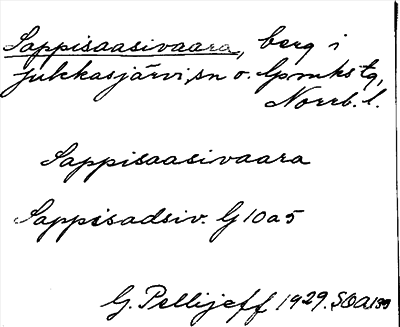 Sappisaasivaara, berg i
Jukkasjärvi sn o. lpmks tg,
Norrb. l.
Sappisaasivaara
Sappisadsiv. G10a5
G. Pellijeff 1929. SOA